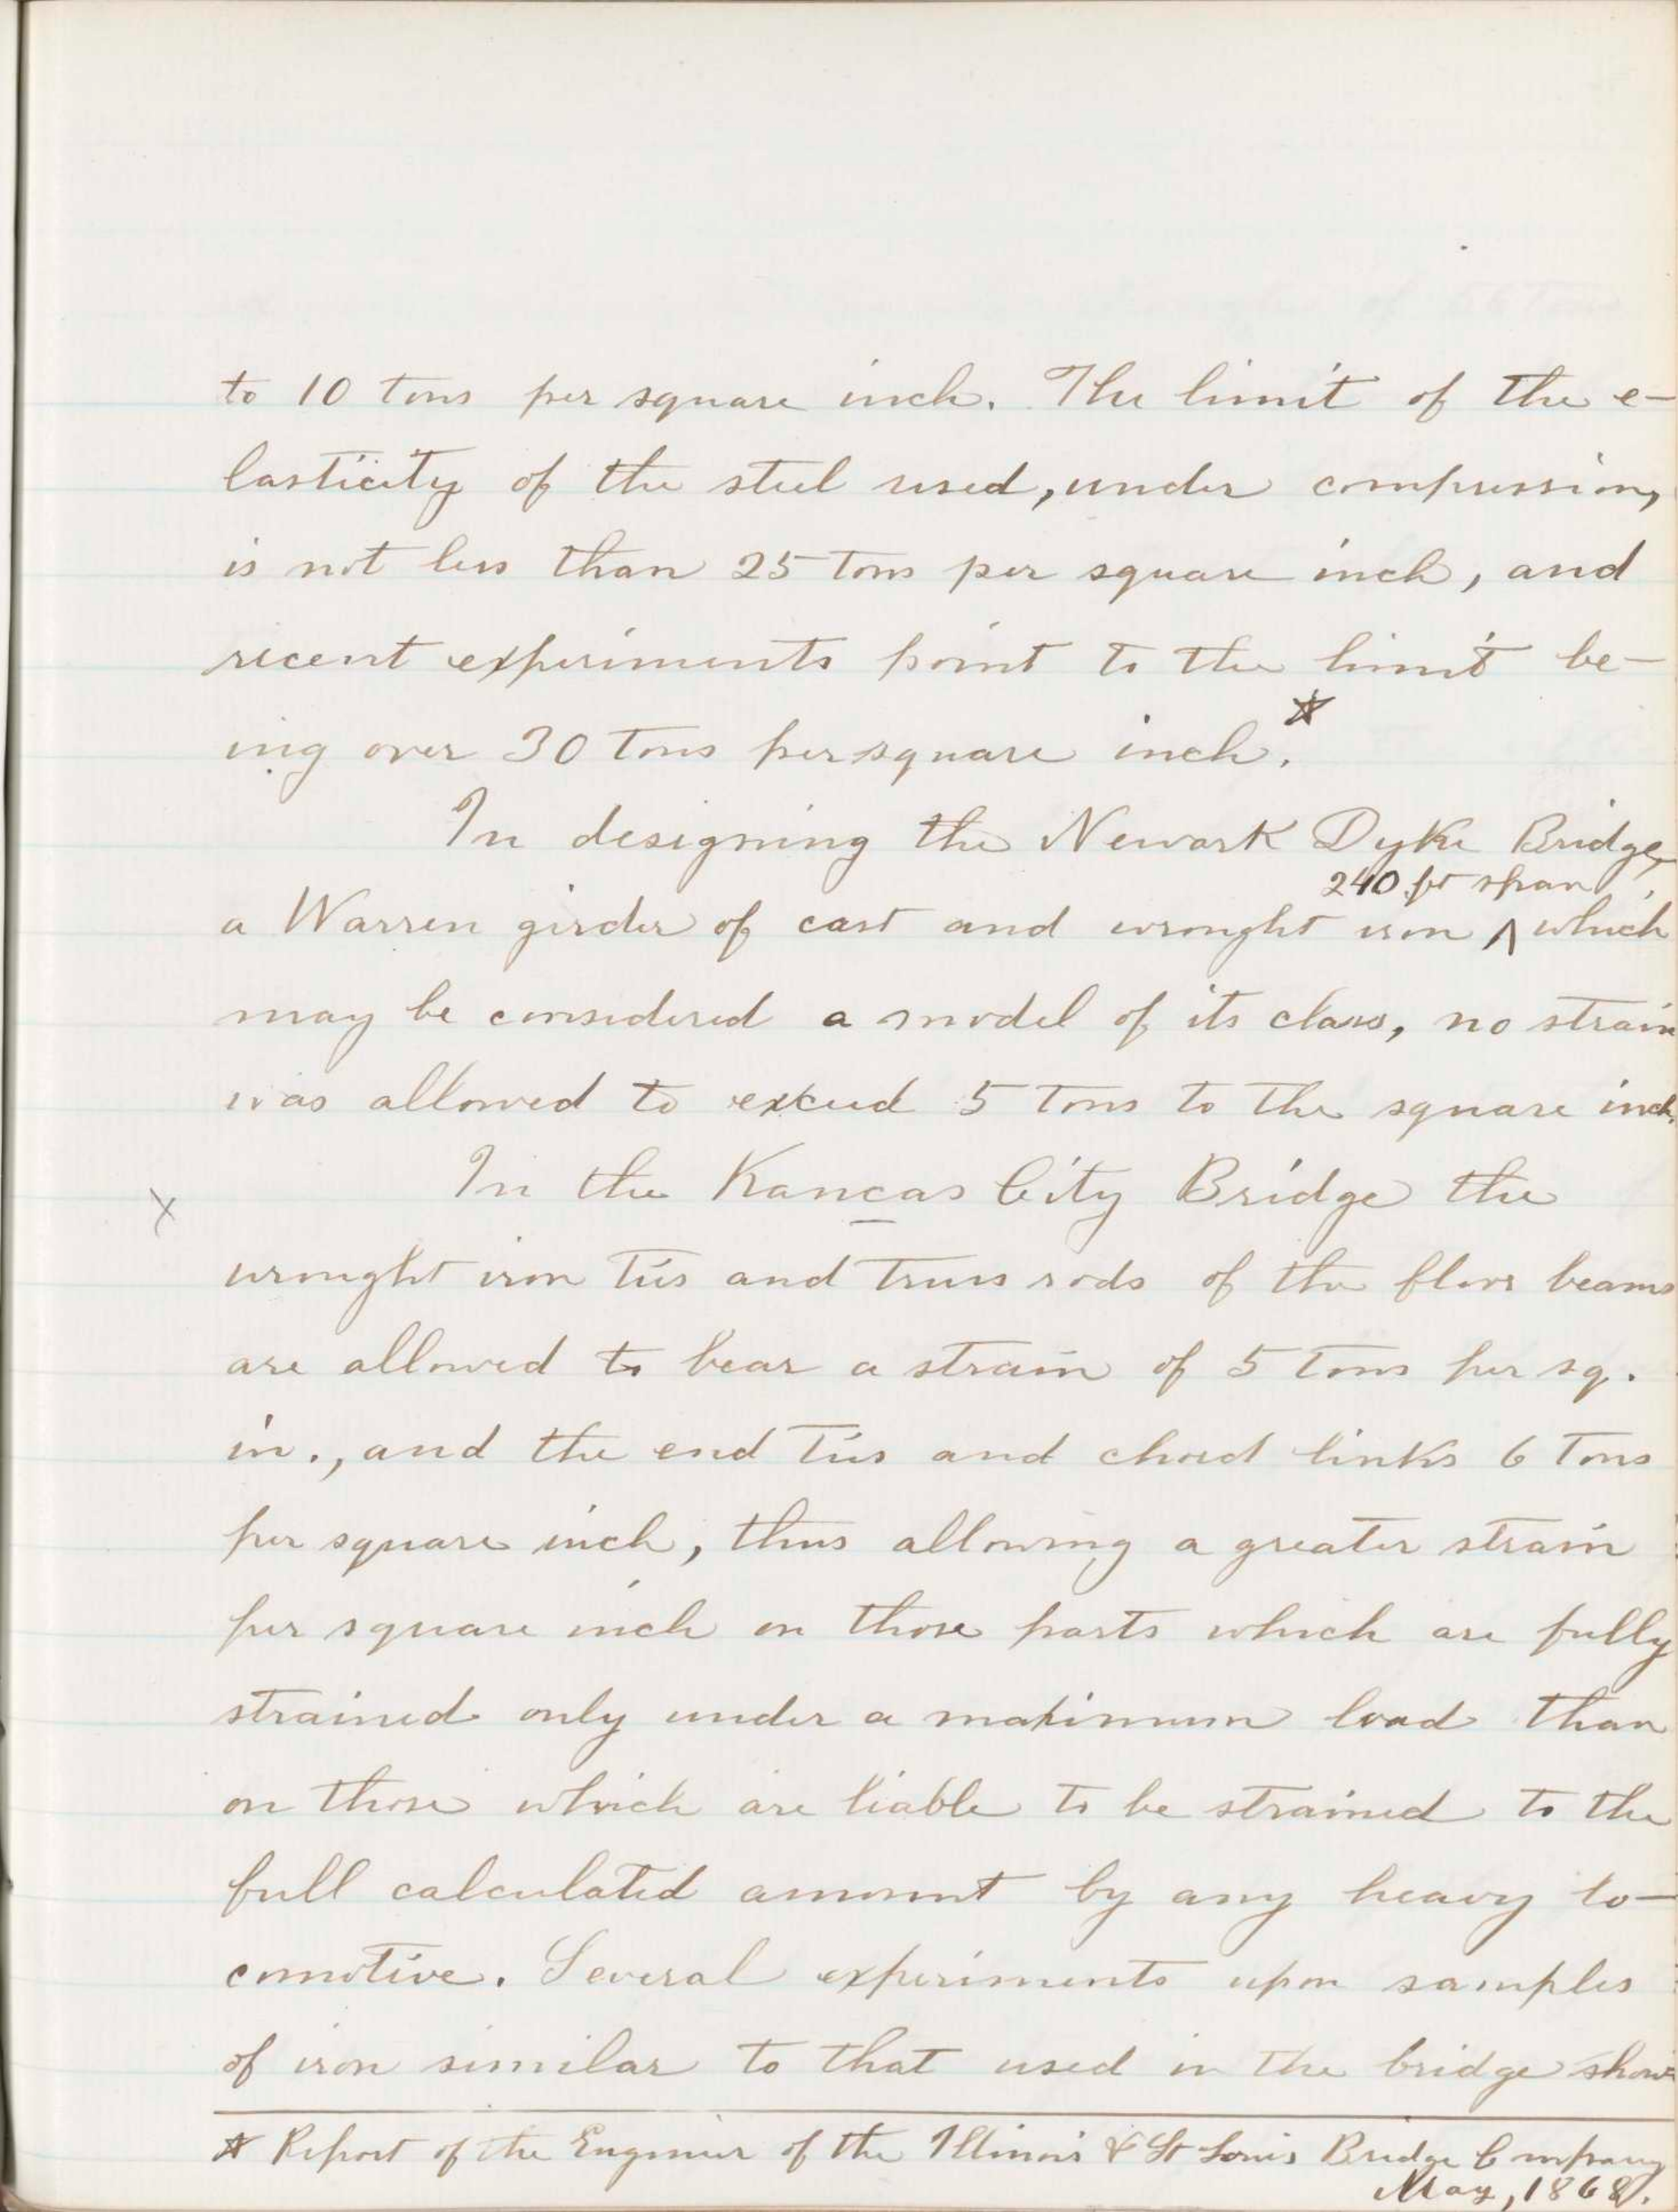 to 10 tons per square inch. The limit of the e-
lasticity of the steel used, under compression,
is not less than 25 tons per square inch, and
recent experiments point to the limit be-
ing over 30 tons per square inch.*
In designing the Newark Dyke Bridge,
240 ft span,
a Warren girder of cast and wrought iron ^ which
may be considered a model of its class, no strain
was allowed to exceed 5 tons to the square inch.
x In the Kancas City Bridge the
wrought iron ties and truss rods of the floor beams
are allowed to bear a strain of 5 tons per sq.
in., and the end ties and chord links 6 tons
per square inch, thus allowing a greater strain
per square inch on those parts which are fully
strained only under a maximum load than
on those which are liable to be strained to the
full calculated amount by any heavy lo-
comotive. Several experiments upon samples
of iron similar to that used in the bridge show
* Report of the Engineer of the Illinois & St Louis Bridge Company
May, 1868.